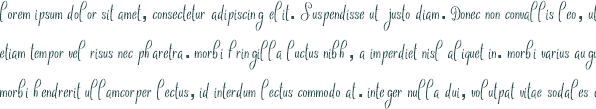 lorem ipsum dolor sit amet, consectetur adipiscing elit. Suspendisse ut justo diam. Donec non convallis leo, ut
etiam tempor vel risus nec pharetra. morbi fringilla luctus nibh, a imperdiet nisl aliquet in. morbi varius augu
morbi hendrerit ullamcorper lectus, id interdum lectus commodo at. integer nulla dui, volutpat vitae sodales